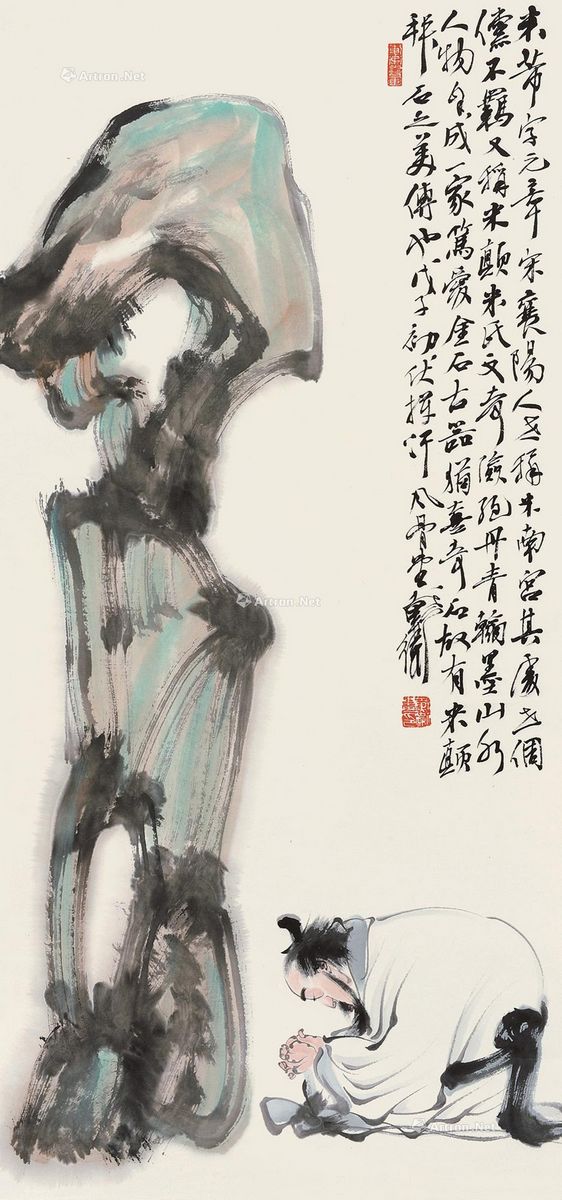 米芾字元章宋襄陽人世稱米南宮其處世倜
儻不羈又稱米顛米氏文奇險絕丹青翰墨山水
人物自成一家篤愛金石古器猶喜奇石故有米顛
拜石之美傳也戊子初伏揮汗風骨堂
Artron.Net
Artron.Net
Artron.Net
Artron.Net